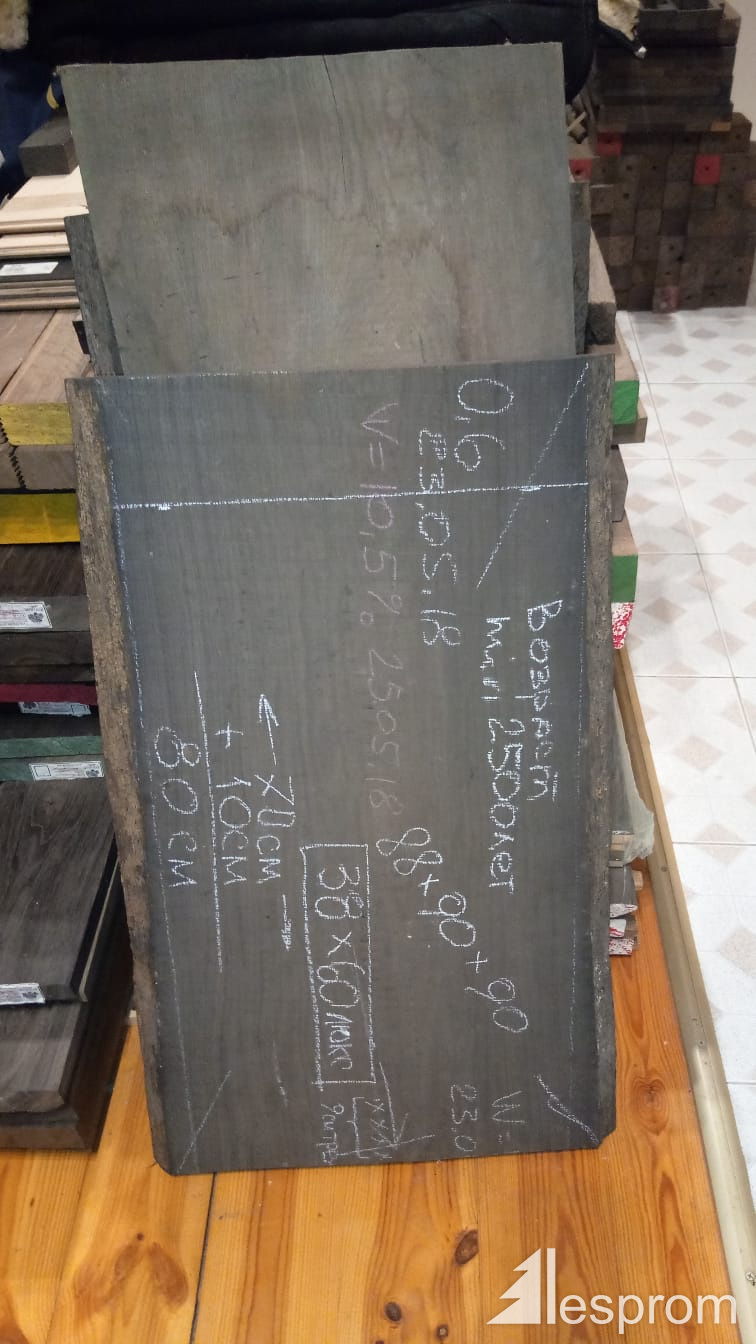 0,6
23.05.18
V=10,5% 25.05.18
Возраст
мин 2500лет
88+90+90
W=
23.0
38×60люкс
← 70см
+ 10см
80см
lesprom